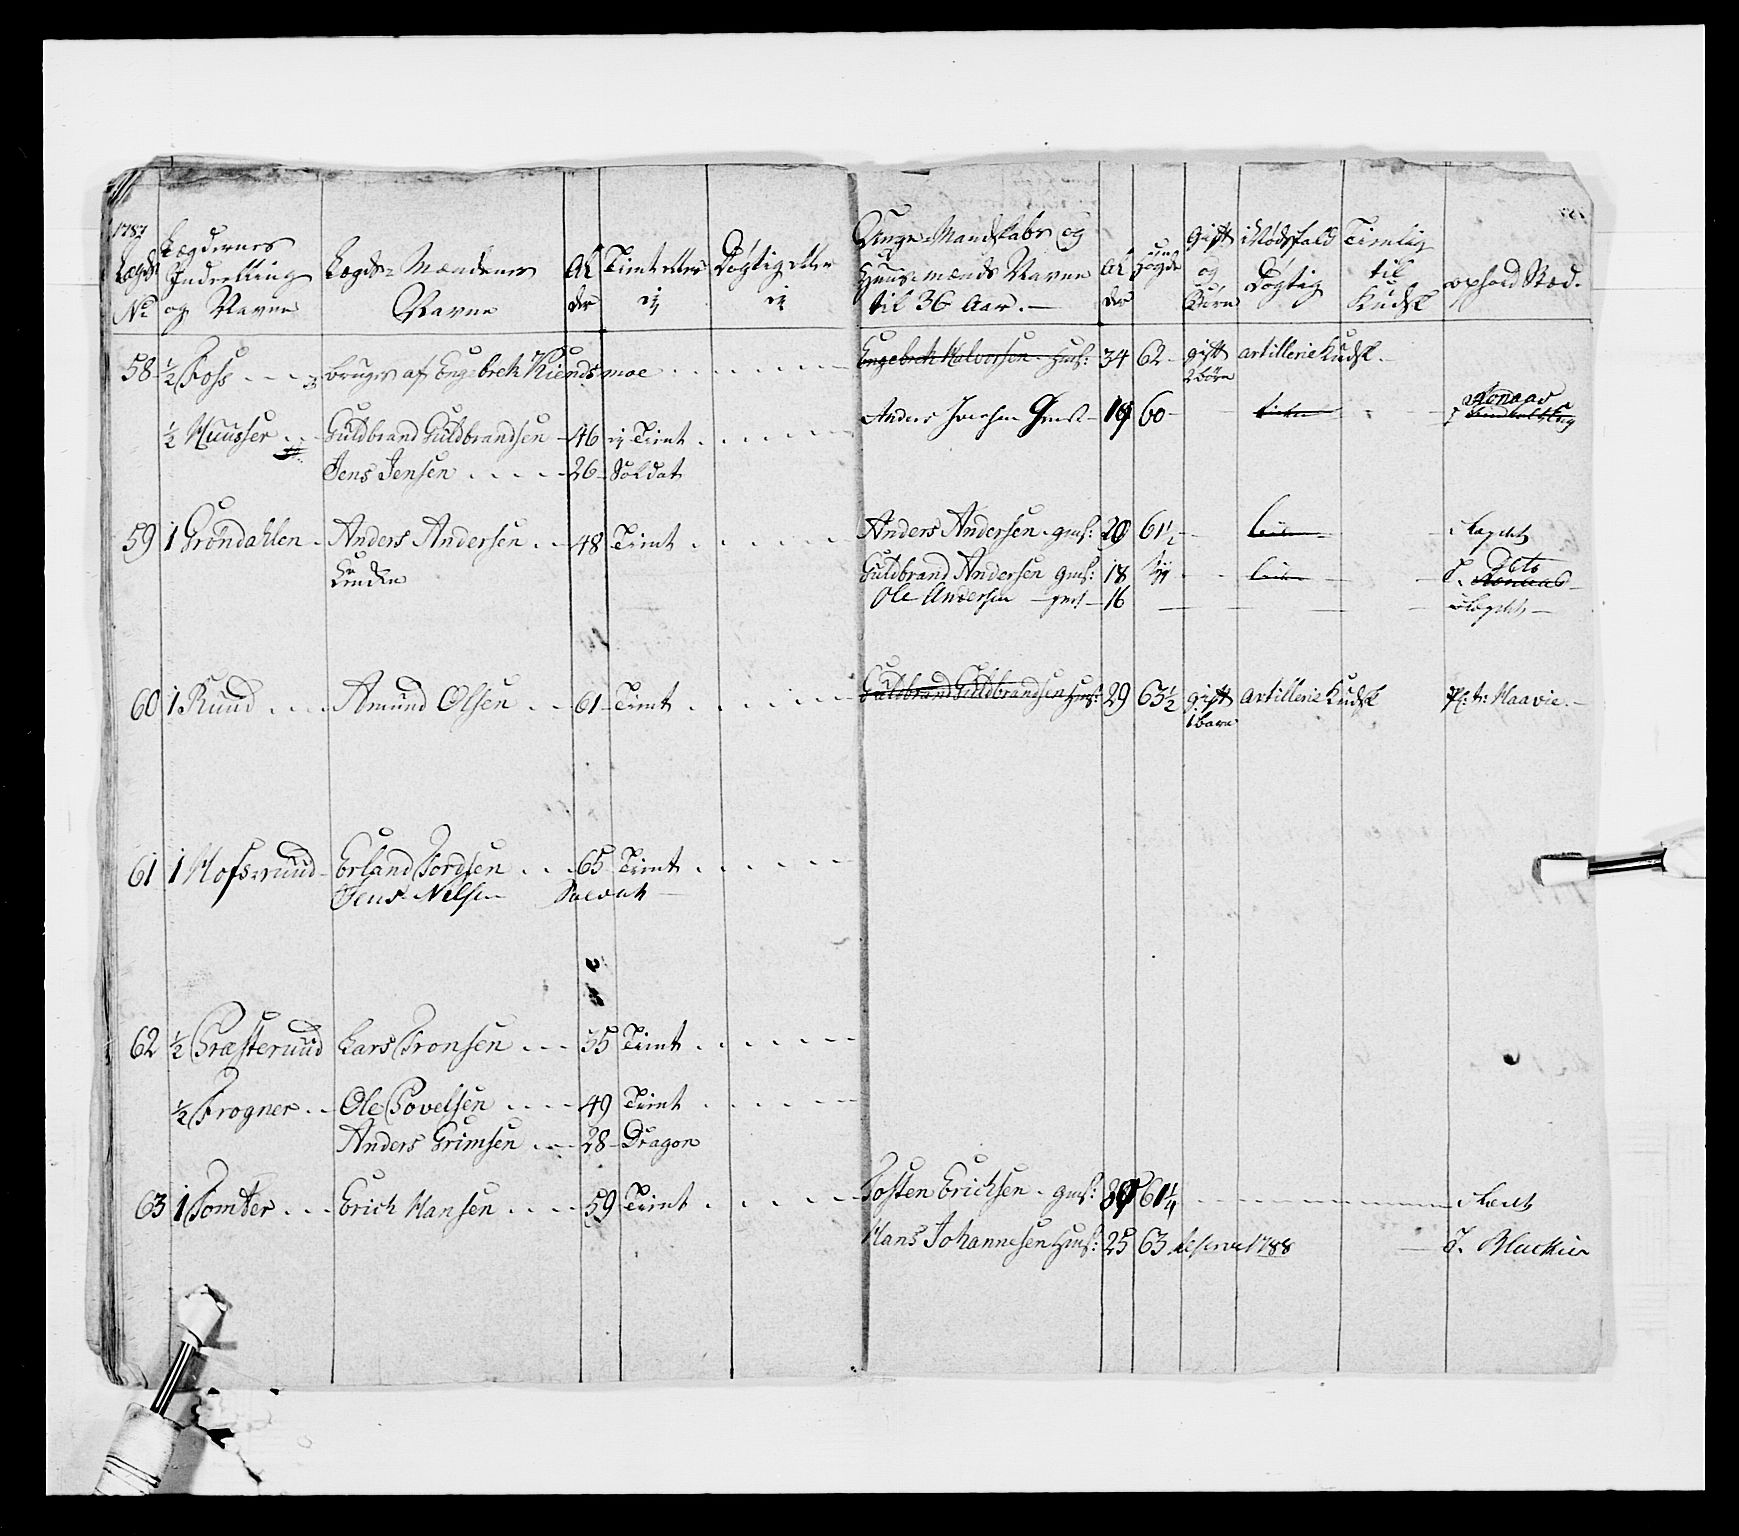 1787
Lægds No
Lægdernes Inddeeling og Navne
Lægds-Mændenes Navne
Al der
Tient eller ej
Dygtig eller ej
Unge Mandskabs og Huusmænds Navne til 36 Aar.
Al der
Høyde
Gift og Børn
i Nødsfald Dygtig
Tienlig til Kudsk
ophold Stæd.
58 ½ Foss bruges af Engebreth Kiendsmoe
Engebreth Halvorsen Huus: 34 62 gift 2 børn artillerie Kudsk
½ Huusser Guldbrand Guldbrandsen 46 ej Tient
Anders 60 Aonaas
Jens Jensen 26 Soldat
59 1 Grøndahlen Anders Andersen 48 Tient
Anders Andersen gms: 20 61½ i Lægdet
Enken
Guldbrand Andersen gms: 18 Dito
Ole Andersen 16 i Lægdet
60 1 Ruud Amund Olsen 61 Tient
Guldbrand Guldbrandsen Huus: 29 63½ gift 1 barn artillerie Kudsk Haavie
61 1 Hofsruud Erland Tordsen 65 Tient
Jens Nilsen Soldat
62 ½ Præsteruud Lars Tronsen 35 Tient
½ Frogner Ole Povelsen 49 Tient
Anders Grimsen 28 Dragon
63 1 Tomter Erich Hansen 59 Tient
Tosten Erichsen gms: 61¼
Hans Johannesen Huus: 25 63 reserve 1788